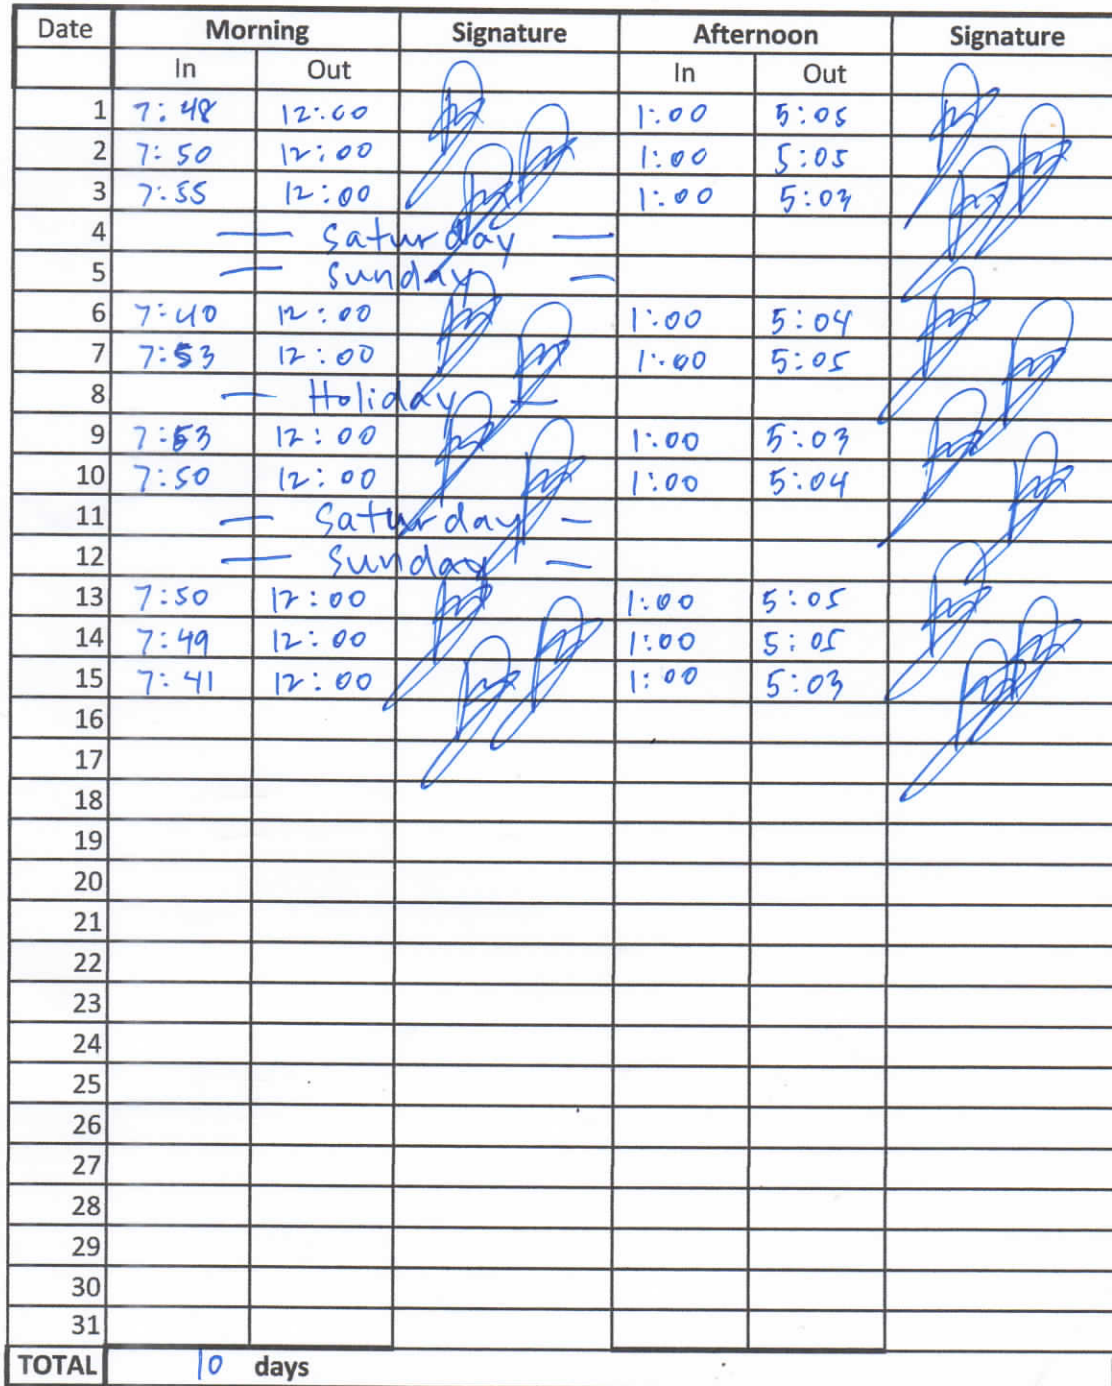 Date Morning Signature Afternoon Signature
In Out In Out
1 7:48 12:00 1:00 5:05
2 7:50 12:00 1:00 5:05
3 7:55 12:00 1:00 5:03
4 — Saturday —
5 — Sunday —
6 7:40 12:00 1:00 5:04
7 7:53 12:00 1:00 5:05
8 — Holiday —
9 7:53 12:00 1:00 5:03
10 7:50 12:00 1:00 5:04
11 — Saturday —
12 — Sunday —
13 7:50 12:00 1:00 5:05
14 7:49 12:00 1:00 5:05
15 7:41 12:00 1:00 5:03
16
17
18
19
20
21
22
23
24
25
26
27
28
29
30
31
TOTAL 10 days